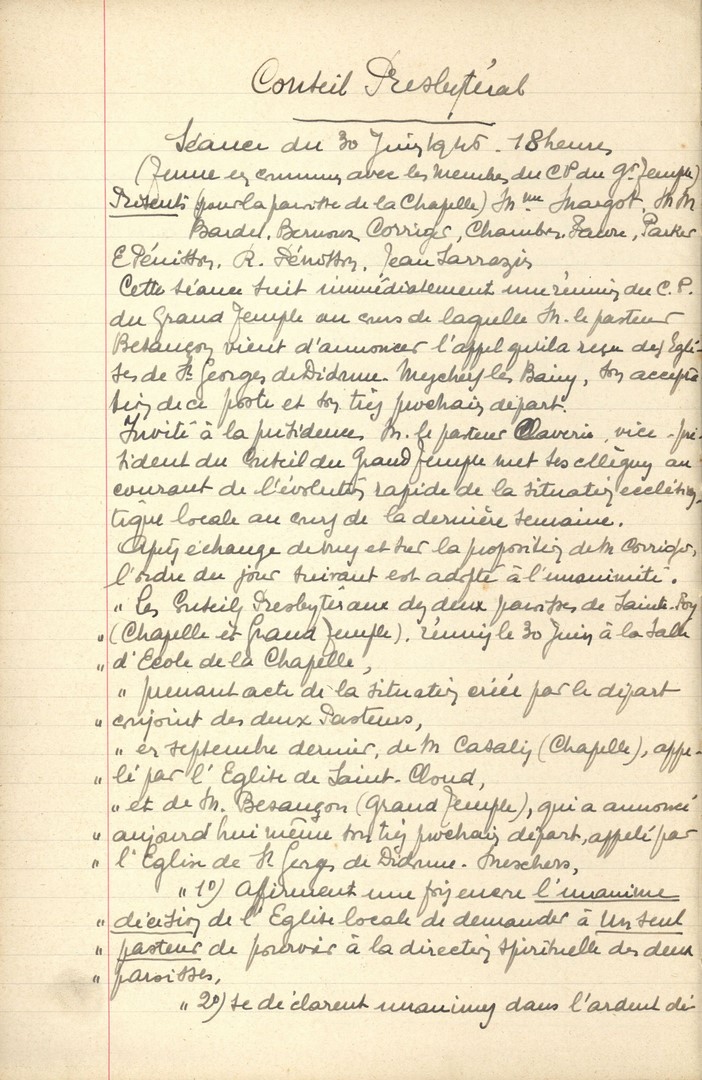 Conseil Presbytéral
Séance du 30 Juin 1946. 18 heures
(Tenue en commun avec les Membres du C.P. du Gd Temple)
Présents (pour la paroisse de la Chapelle) Mme Margot, MM
Barde, Bernoux, Corriger, Chambon, Favre, Parker
E Pénisson, R. Pénisson, Jean Sarrazin
Cette séance suit immédiatement une réunion du C.P.
du Grand Temple au cours de laquelle M. le pasteur
Besançon vient d'annoncer l'appel qu'il a reçu des Egli-
ses de St Georges de Didonne. Meschers les Bains, son accepta-
tion de ce poste et son très prochain départ.
Invité à la présidence M. le pasteur Claverie, vice-pré-
sident du Conseil du Grand Temple met ses collègues au
courant de l'évolution rapide de la situation ecclésias-
tique locale au cours de la dernière semaine.
Après échange de vues et sur la proposition de M Corriger,
l'ordre du jour suivant est adopté à l'unanimité.
" Les Conseils Presbytéraux des deux paroisses de Sainte-Foy
" (Chapelle et Grand Temple), réunis le 30 Juin à la Salle
" d'Ecole de la Chapelle,
" prenant acte de la situation créée par le départ
" conjoint des deux Pasteurs,
" en septembre dernier, de M Casalis (Chapelle), appe-
" lé par l'Eglise de Saint-Cloud,
" et de M. Besançon (Grand Temple), qui a annoncé
" aujourd'hui même son très prochain départ, appelé par
" l'Eglise de St Georges de Didonne-Meschers,
" 1o) Affirment une fois encore l'unanime
" décision de l'Eglise locale de demander à un seul
" pasteur de pourvoir à la direction spirituelle des deux
" paroisses,
" 2o) se déclarent unanimes dans l'ardent dé-